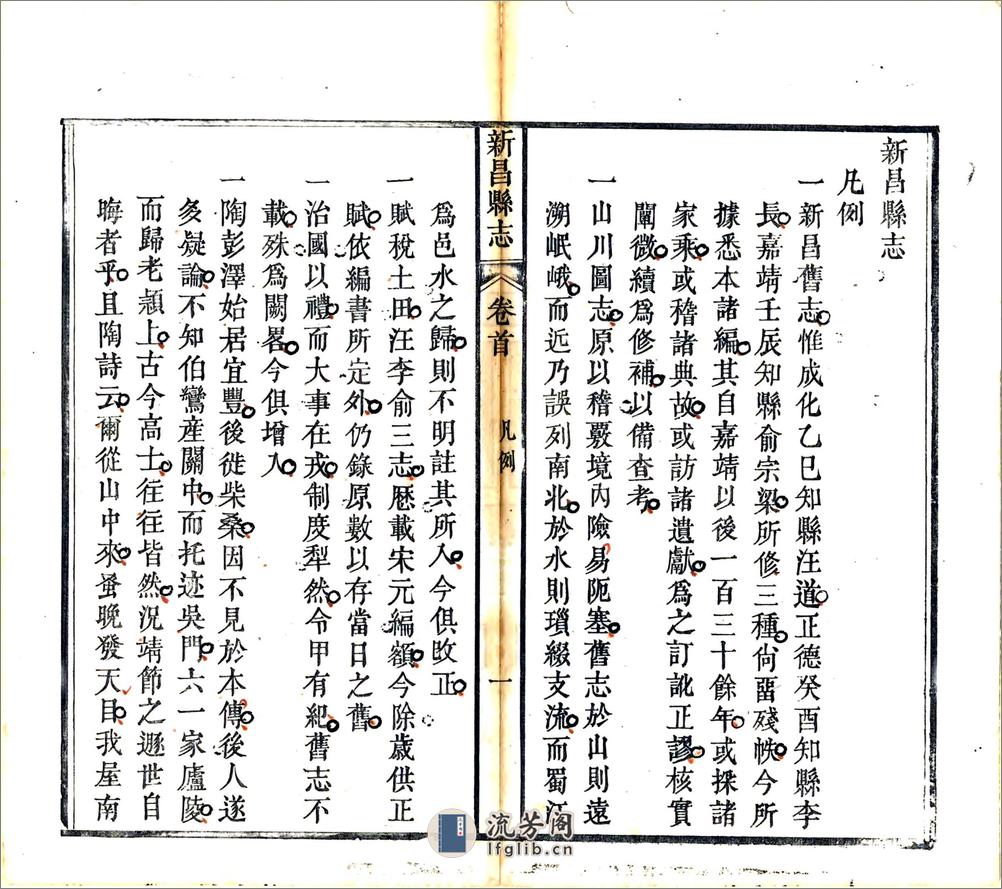 新昌縣志
凡例
一新昌舊志惟成化乙巳知縣汪道正德癸酉知縣李
長嘉靖壬辰知縣俞宗梁所修三種尙畱殘帙今所
據悉本諸編其自嘉靖以後一百三十餘年或採諸
家乘或稽諸典故或訪諸遺獻爲之訂訛正謬核實
闡微續爲修補以備查考
一山川圖志原以稽覈境內險易阨塞舊志於山則遠
溯岷峨而近乃誤列南北於水則瑣綴支流而蜀江
新昌縣志 卷首 凡例 一
爲邑水之歸則不明註其所入今俱改正
一賦稅土田汪李俞三志厯載宋元編額今除歲供正
賦依編書所定外仍錄原數以存當日之舊
一治國以禮而大事在戎制度犁然令甲有紀舊志不
載殊爲闕畧今俱增入
一陶彭澤始居宜豐後徙柴桑因不見於本傳後人遂
多疑論不知伯鸞產關中而托迹吳門六一家廬陵
而歸老潁上古今高士往往皆然況靖節之遯世自
晦者乎且陶詩云爾從山中來蚤晚發天目我屋南
流芳阁
lfglib.cn